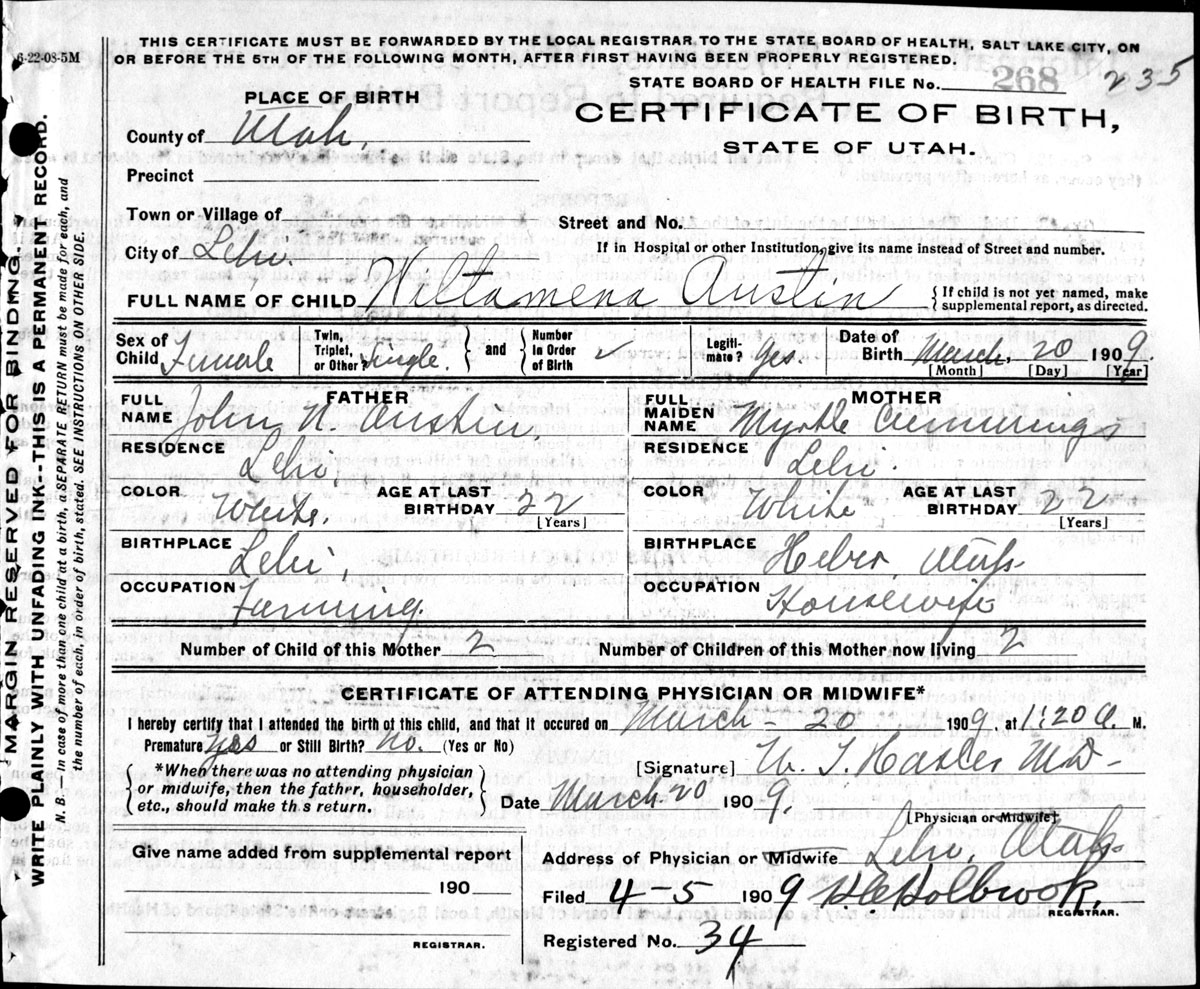 6-22-08-5M
THIS CERTIFICATE MUST BE FORWARDED BY THE LOCAL REGISTRAR TO THE STATE BOARD OF HEALTH, SALT LAKE CITY, ON
OR BEFORE THE 5TH OF THE FOLLOWING MONTH, AFTER FIRST HAVING BEEN PROPERLY REGISTERED.
STATE BOARD OF HEALTH FILE No. 268 235
PLACE OF BIRTH
CERTIFICATE OF BIRTH,
STATE OF UTAH.
County of Utah,
Precinct
Town or Village of
Street and No.
City of Lehi.
If in Hospital or other Institution, give its name instead of Street and number.
FULL NAME OF CHILD Wiltamena Austin { If child is not yet named, make
supplemental report, as directed.
Sex of Child Female Twin, Triplet, or Other? Single. } and { Number in Order of Birth ✓ Legiti-mate? Yes. Date of Birth March, 20 1909.
[Month] [Day] [Year]
FATHER
FULL NAME John Austin.
RESIDENCE Lehi,
COLOR White. AGE AT LAST BIRTHDAY 22
[Years]
BIRTHPLACE Lehi,
OCCUPATION Farming.
MOTHER
FULL MAIDEN NAME Myrtle Cummings
RESIDENCE Lehi.
COLOR White AGE AT LAST BIRTHDAY 22
[Years]
BIRTHPLACE Heber, Utah
OCCUPATION Housewife
Number of Child of this Mother 2 Number of Children of this Mother now living 2
CERTIFICATE OF ATTENDING PHYSICIAN OR MIDWIFE*
I hereby certify that I attended the birth of this child, and that it occured on March - 20 1909 at 1:20 a. M.
Premature? Yes or Still Birth? No. (Yes or No)
[Signature] MD-
*When there was no attending physician
or midwife, then the father, householder,
etc., should make this return.
Date March 20 1909.
[Physician or Midwife]
Give name added from supplemental report
190
REGISTRAR.
Address of Physician or Midwife Lehi, Utah.
Filed 4-5 1909 Holbrook,
REGISTRAR.
Registered No. 34
MARGIN RESERVED FOR BINDING.
WRITE PLAINLY WITH UNFADING INK--THIS IS A PERMANENT RECORD.
N. B. In case of more than one child at a birth, a SEPARATE RETURN must be made for each, and
the number of each, in order of birth, stated. SEE INSTRUCTIONS ON OTHER SIDE.